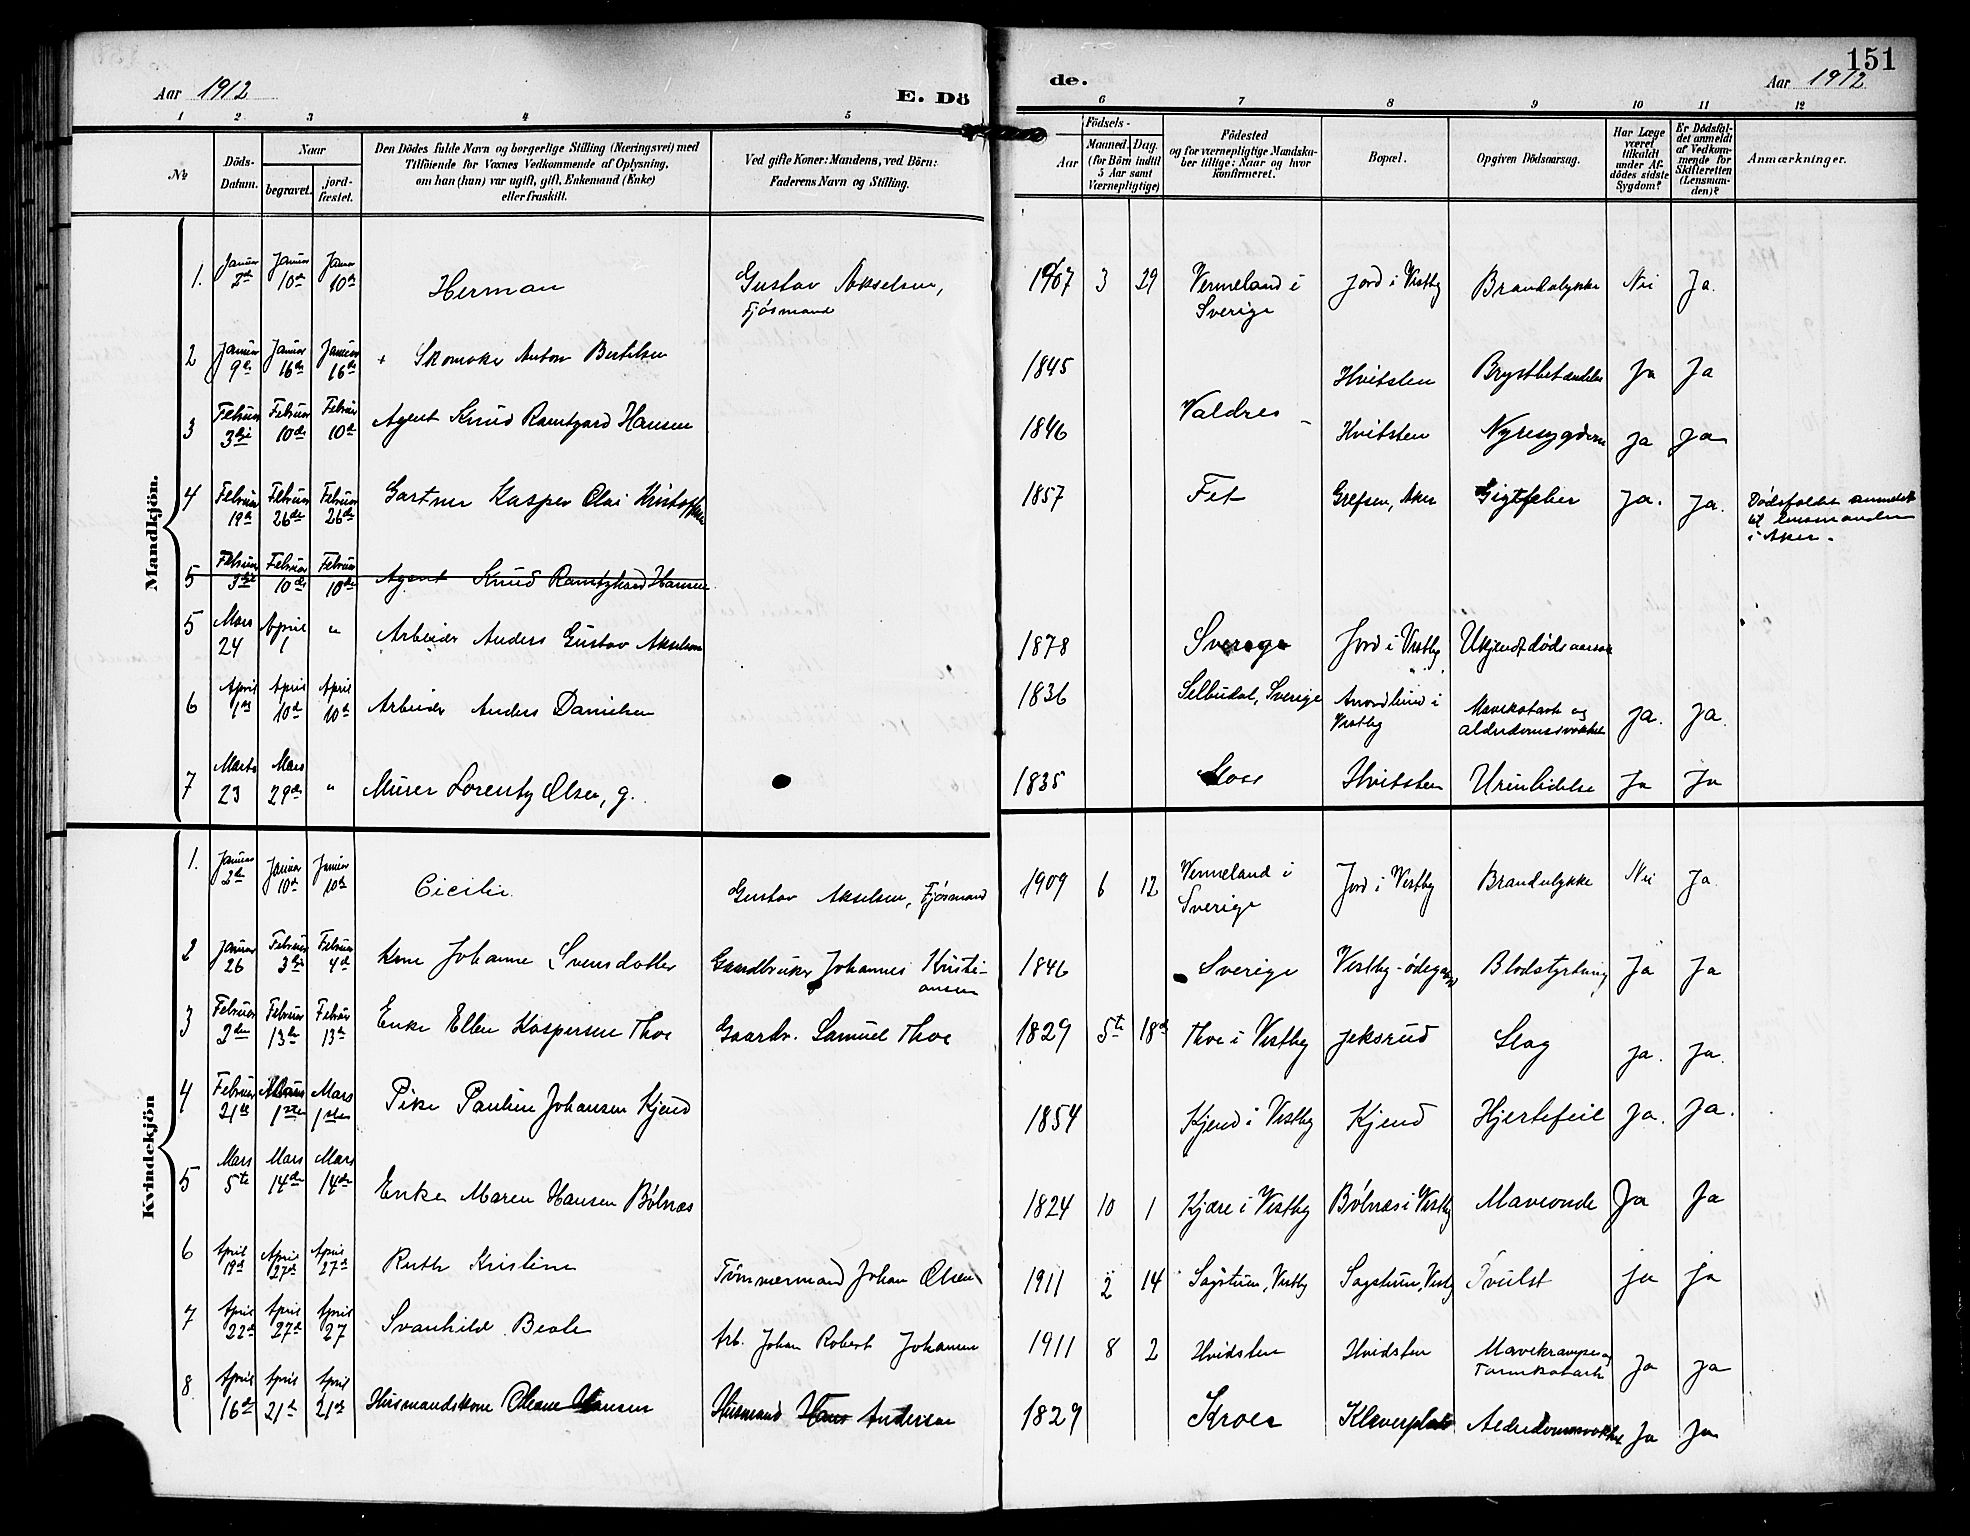 151
Aar 1912 E. Dö de. Aar 1912
1 2 3 4 5 6 7 8 9 10 11 12
№ Döds-Datum. Naar begravet. jord-fæstet. Den Dödes fulde Navn og borgerlige Stilling (Næringsvei) med Tilföiende for Voxnes Vedkommende af Oplysning, om han (hun) var ugift, gift, Enkemand (Enke) eller fraskilt. Ved gifte Koner: Mandens, ved Börn: Faderens Navn og Stilling. Födsels- Aar Maaned. Dag. (for Börn indtil 5 Aar samt Værnepligtige) Födested og for værnepligtige Mandska-ber tillige: Naar og hvor konfirmeret. Bopæl. Opgiven Dödsaarsag. Har Læge været tilkaldt under Af-dödes sidste Sygdom? Er Dödsfal-det anmeldt af Vedkom-mende for Skifteretten (Lensman-den)? Anmærkninger.
Mandkjön.
1. Januar 2den Januar 10de Januar 10de Herman Gustav Akselsen, Fjøsmand 1907 3 29 Vermeland i Sverige Jord i Vestby Brandulykke Nei Ja.
2 Januar 9de Januar 16de Januar 16de + Skomaker Anton Bertelsen 1845 Hvitsten Brystbetændelse Ja Ja
3 Februar 3dje Februar 10de Februar 10de Agent Knud Ramtgard Hansen 1846 Valdres Hvitsten Nyresygdom ja Ja
4 Februar 19de Februar 26de Februar 26de Gartner Kasper Olai Kristoffersen 1857 Fet Grefsen, Aker Gigtfeber Ja. Ja. Dødsfaldet anmeldt til lensmanden i Aker.
5 Februar 3dje Februar 10de Februar 10de Agent Knud Hansen
5 Mars 24 April 1 " Arbeider Anders Gustav Akselson 1878 Sverige Jord i Vestby Ukjendt dødsaarsak
6 April 1ste April 10de April 10de Arbeider Anders Danielsen 1836 Selbudal, Sverige i Vestby Mavekatarh og alderdomssvækkelse Ja. Ja.
7 Marts 23 Mars 29de " Murer Lorentz Olsen, g. 1835 Hvitsten Urinlidelse Ja Ja
Kvindekjön
1. Januar 2den Januar 10de Januar 10de Cicilie. Gustav Akselsen, Fjøsmand 1909 6 12 Vermeland i Sverige Jord i Vestby Brandulykke Nei Ja.
2 Januar 26 Februar 3dje Februar 4de Kone Johanne Svensdotter Gaardbruker Johannes Kristi-ansen 1846 Sverige Vestby-ødegaard Blodstyrtning Ja Ja
3 Februar 2den Februar 13de Februar 13de Enke Ellen Kaspersen Thoe Gaardbr. Samuel Thoe 1829 5te 18de Thoe i Vestby Jeksrud Slag Ja. Ja.
4 Februar 21de 1ste Mars 1ste Pike Pauline Johansen Kjend 1854 Kjend i Vestby Kjend Hjertefeil Ja. Ja.
5 Mars 5te Mars 14de Mars 14de Enke Maren Hansen Bølnæs 1824 10 1 Kjære i Vestby Bølnæs i Vestby Maveonde Ja Ja
6 April 19de April 27de April 27de Ruth Kristine Tømmermand Johan Olsen 1911 2 14 Sagstuen, Vestby Sagstuen, Vestby Svulst Ja Ja
7 April 22de April 27de April 27 Svanhild Beate Arb. Johan Robert Johansen 1911 8 2 Hvidsten Hvidsten Mavekrampe og Tarmkatarh Ja Ja
8 April 16de April 21de April 21de Husmandskone Oleane Hansen Husmand Hans Andersen 1829 Kroer Kleverplads Alderdomssvækkelse Ja Ja